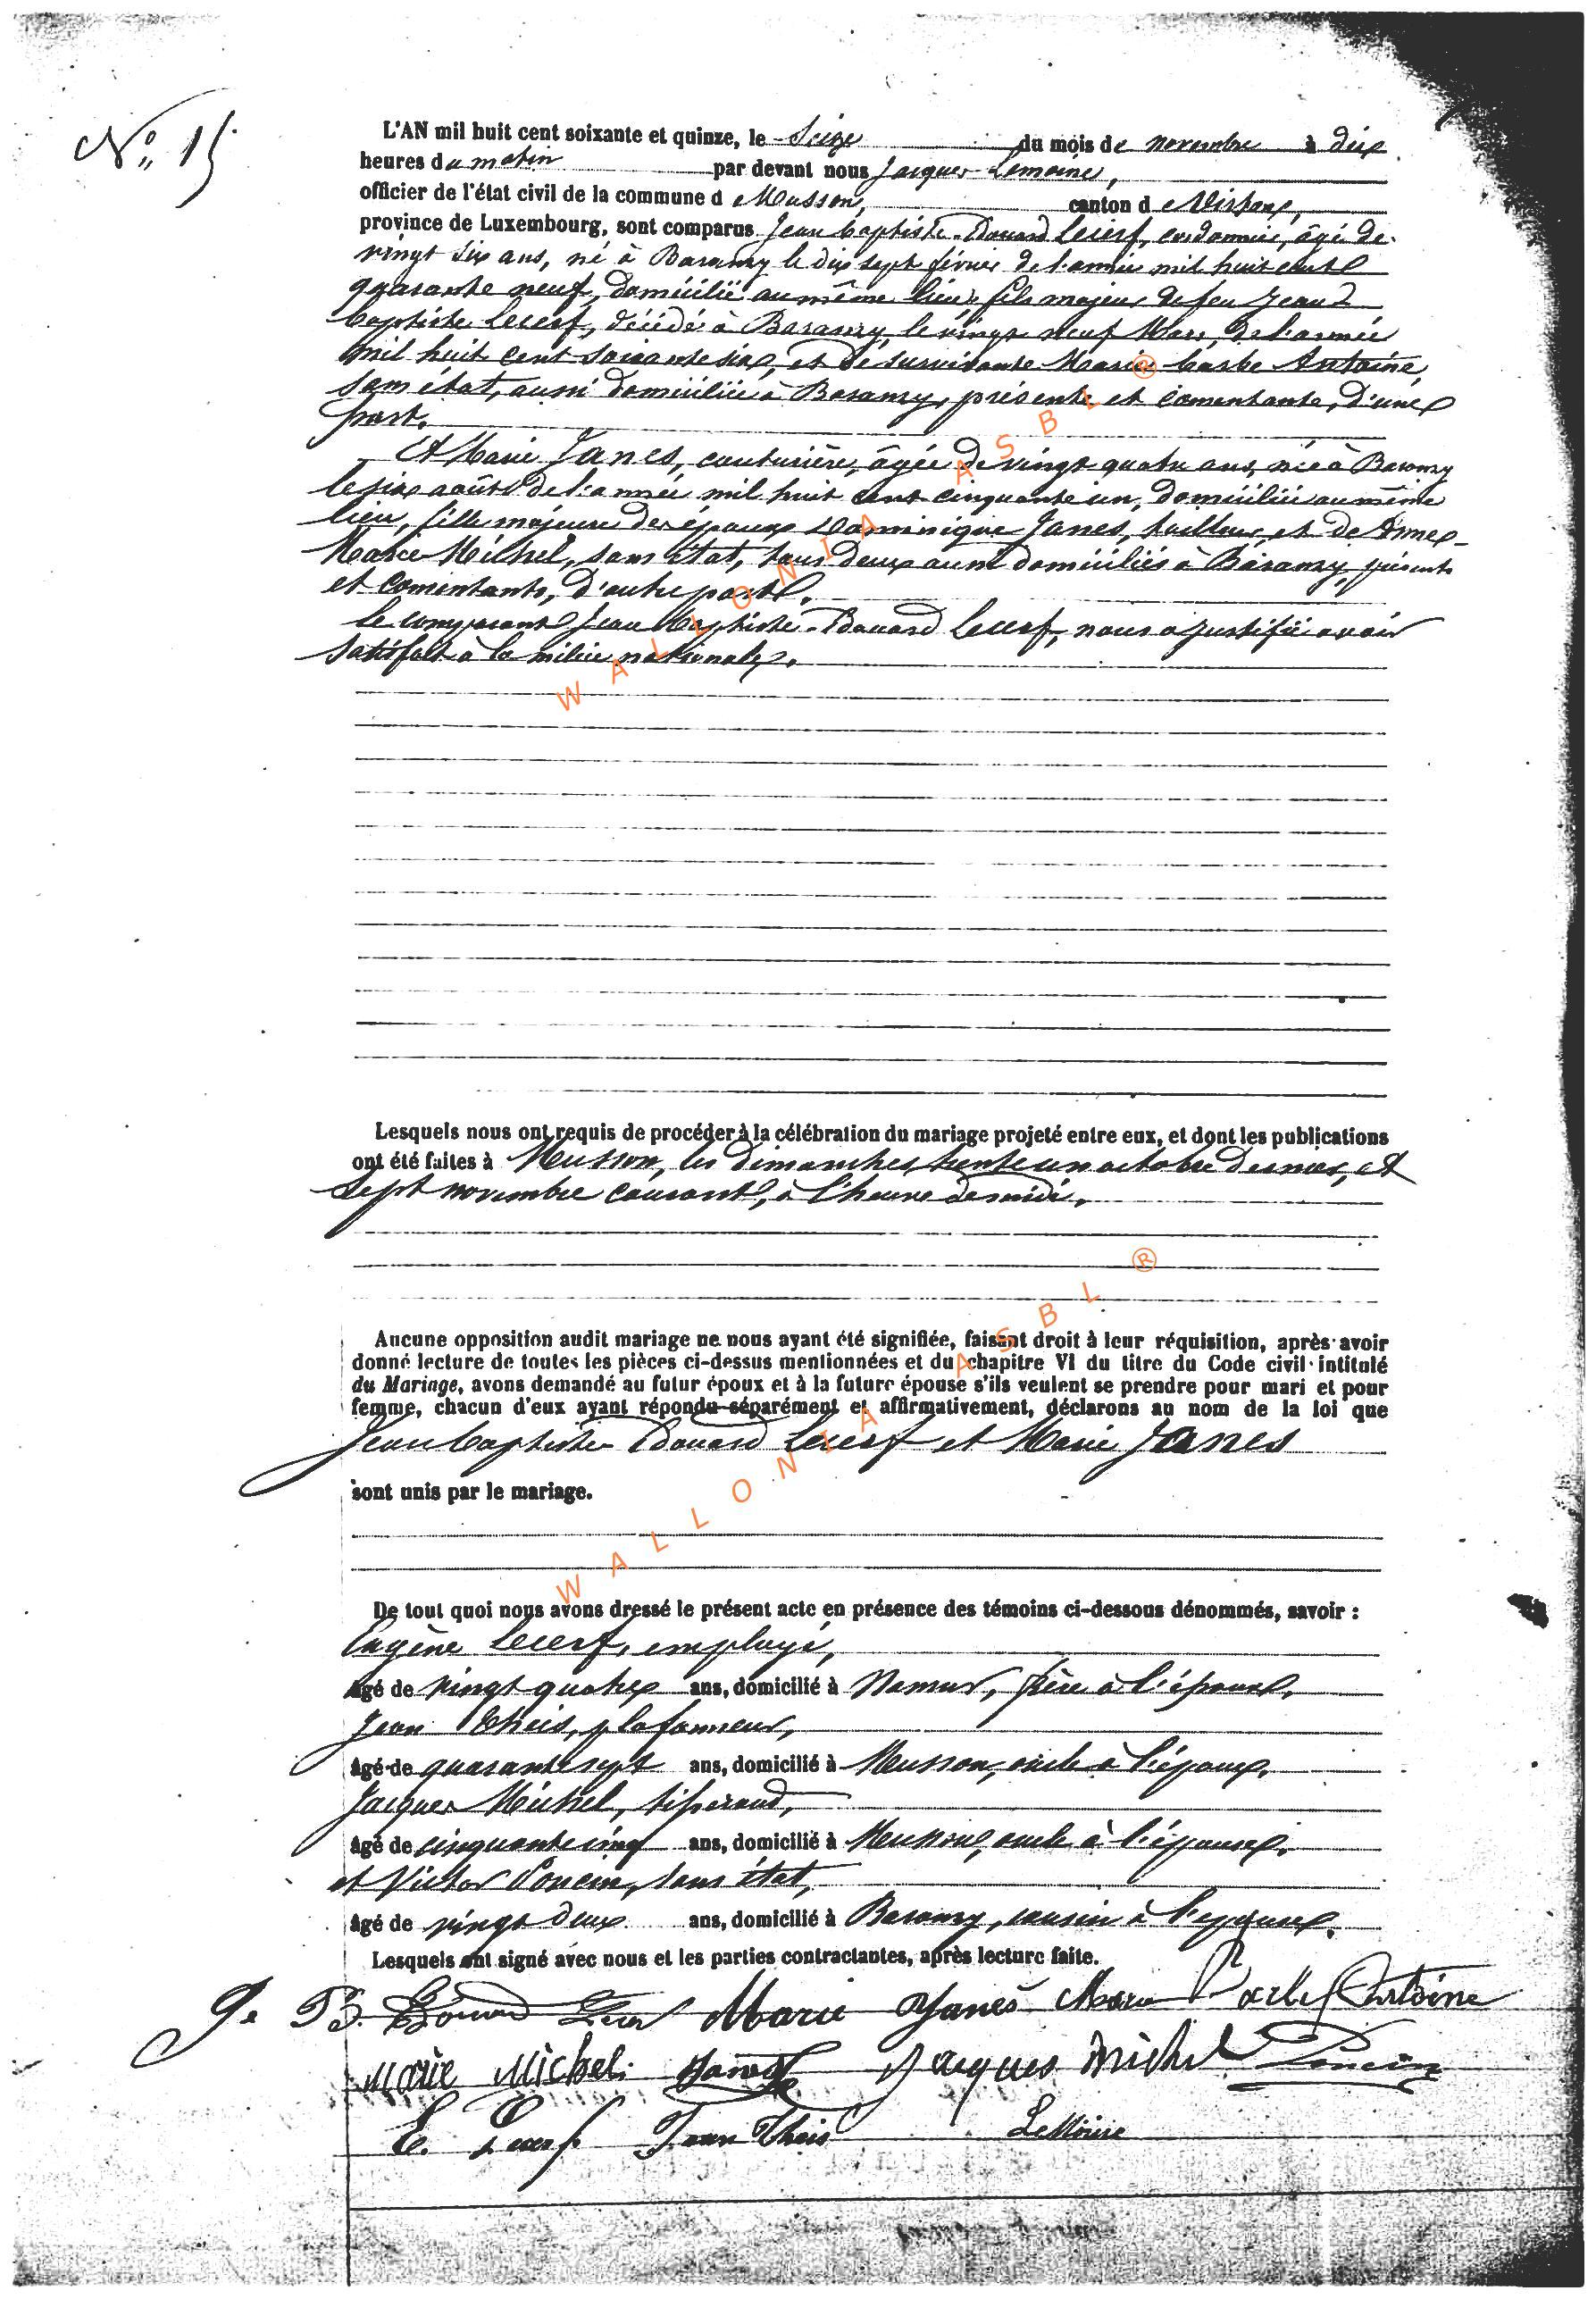 N° 15
L'AN mil huit cent soixante et quinze, le Seize du mois de novembre à dix
heures du matin par devant nous Jacques Lemoine,
officier de l'état civil de la commune de Musson, canton de Virton,
province de Luxembourg, sont comparus Jean baptiste Edouard Lecerf, cordonnier, âgé de
vingt six ans, né à Baranzy le dix sept février de l'année mil huit cent
quarante neuf, domicilié au même lieu, fils majeur de feu Jean
baptiste Lecerf, décédé à Baranzy, le vingt neuf Mars, de l'année
mil huit cent soixante six, et de survivante Marie barbe Antoine,
sans état, aussi domiciliée à Baranzy, présente et consentante, d'une
part.
Et Marie Janes, couturière, âgée de vingt quatre ans, née à Baranzy
le six août de l'année mil huit cent cinquante un, domiciliée au même
lieu, fille majeure des époux Dominique Janes, tailleur, et de Anne
Marie Michel, sans état, tous deux aussi domiciliés à Baranzy, présents
et consentants, d'autre part.
Le comparant Jean baptiste Edouard Lecerf, nous a justifié avoir
satisfait à la milice nationale.
Lesquels nous ont requis de procéder à la célébration du mariage projeté entre eux, et dont les publications
ont été faites à Musson, les dimanches trente un octobre dernier, et
sept novembre courant, à l'heure de midi.
Aucune opposition audit mariage ne nous ayant été signifiée, faisant droit à leur réquisition, après avoir
donné lecture de toutes les pièces ci-dessus mentionnées et du chapitre VI du titre du Code civil intitulé
du Mariage, avons demandé au futur époux et à la future épouse s'ils veulent se prendre pour mari et pour
femme, chacun d'eux ayant répondu séparément et affirmativement, déclarons au nom de la loi que
Jean baptiste Edouard Lecerf et Marie Janes
sont unis par le mariage.
De tout quoi nous avons dressé le présent acte en présence des témoins ci-dessous dénommés, savoir :
Eugène Lecerf, employé,
âgé de vingt quatre ans, domicilié à Namur, frère à l'époux,
Jean Theis, plafonneur,
âgé de quarante sept ans, domicilié à Musson, oncle à l'époux,
Jacques Michel, tisserand,
âgé de cinquante cinq ans, domicilié à Musson, oncle à l'épouse,
et Victor Poncin, sans état,
âgé de vingt deux ans, domicilié à Baranzy, cousin à l'épouse.
Lesquels ont signé avec nous et les parties contractantes, après lecture faite.
J. B. Edouard Lecerf Marie Janes Marie Barbe Antoine
Marie Michel Janes Jacques Michel Poncin
E. Lecerf Jean Theis Lemoine
WALLONIA ASBL ®
WALLONIA ASBL ®